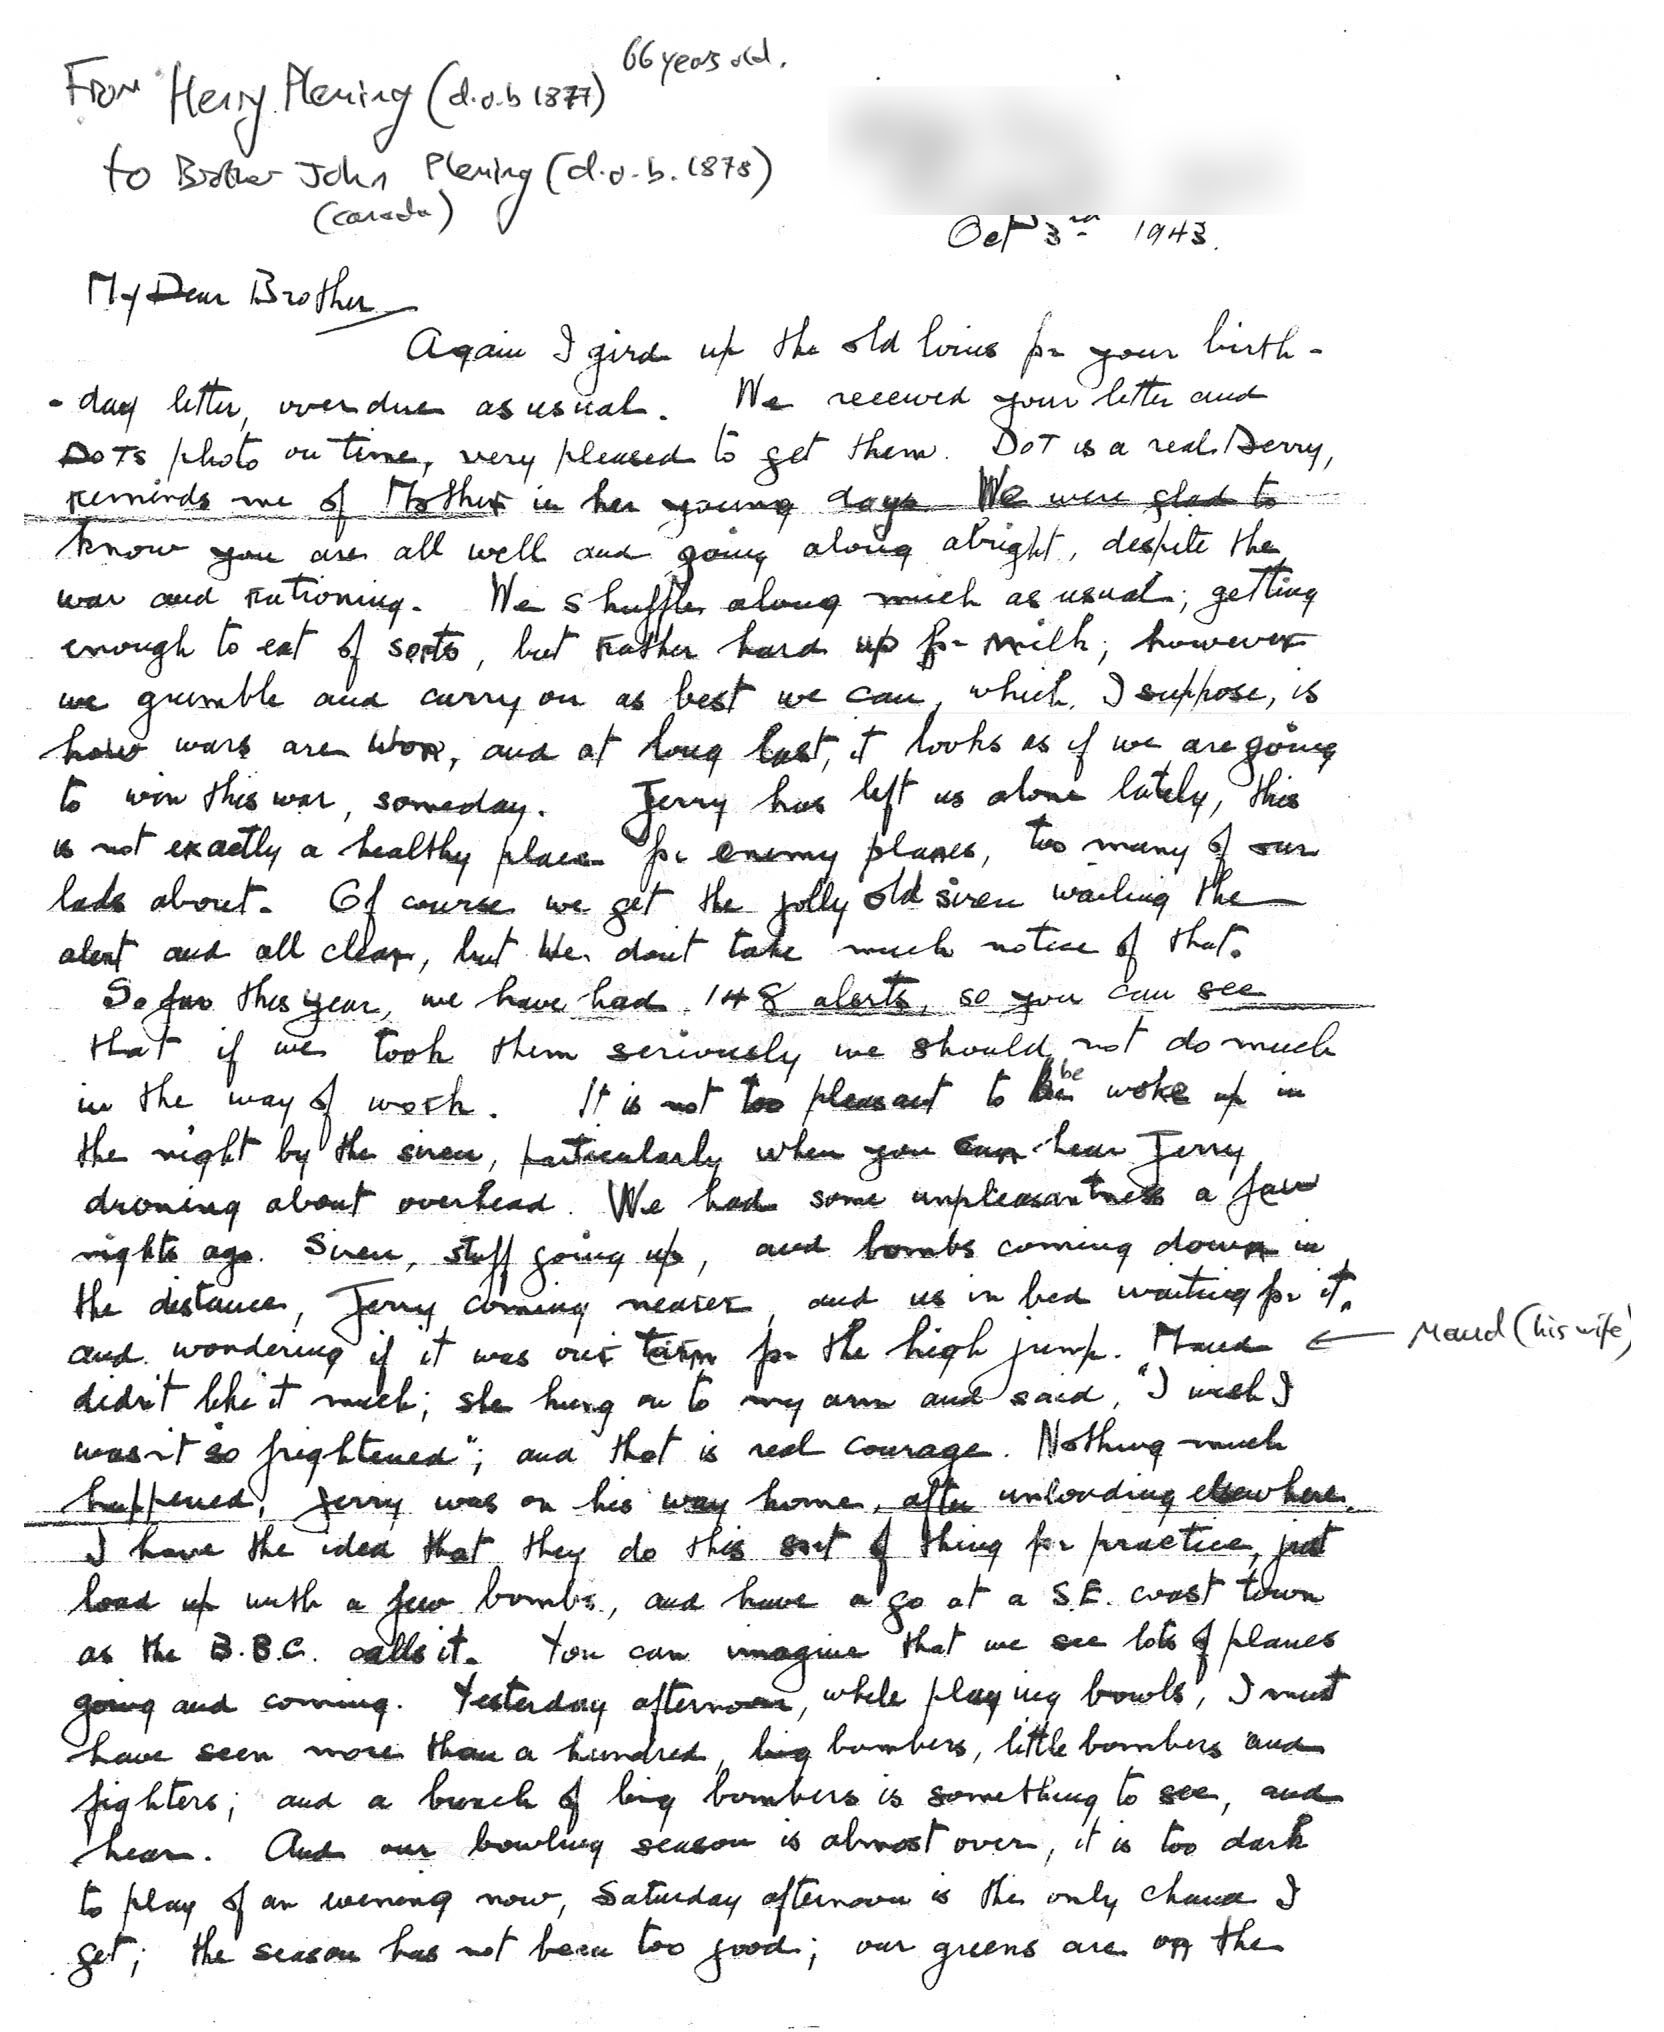 66 years old.
From Henry Plening (d.o.b 1877)
to Brother John Plening (d.o.b. 1878)
(Canada)
Oct 3rd 1943.
My Dear Brother
Again I gird up the old loins for your birth-
-day letter, overdue as usual. We received your letter and
DOTS photo on time, very pleased to get them. DOT is a real Derry,
reminds me of Mother in her young days. We were glad to
know you are all well and going along alright, despite the
war and rationing. We shuffle along much as usual; getting
enough to eat of sorts, but rather hard up for milk; however
we grumble and carry on as best we can, which, I suppose, is
how wars are won, and at long last, it looks as if we are going
to win this war, someday. Jerry has left us alone lately, this
is not exactly a healthy place for enemy planes, too many of our
lads about. Of course we get the jolly old siren wailing the
alert and all clear, but we don't take much notice of that.
So far this year, we have had 148 alerts, so you can see
that if we took them seriously we should not do much
in the way of work. It is not too pleasant to be woke up in
the night by the siren, particularly when you can hear Jerry
droning about overhead. We had some unpleasantness a few
nights ago. Siren, stuff going up, and bombs coming down in
the distance, Jerry coming nearer, and us in bed waiting for it,
and wondering if it was our turn for the high jump. Maud ← Maud (his wife)
didn't like it much; she hung on to my arm and said, "I wish I
wasn't so frightened"; and that is real courage. Nothing much
happened, Jerry was on his way home, after unloading elsewhere.
I have the idea that they do this sort of thing for practice, just
load up with a few bombs, and have a go at a S.E. coast town
as the B.B.C. calls it. You can imagine that we see lots of planes
going and coming. Yesterday afternoon, while playing bowls, I must
have seen more than a hundred, big bombers, little bombers and
fighters; and a bunch of big bombers is something to see, and
hear. And our bowling season is almost over, it is too dark
to play of an evening now, Saturday afternoon is the only chance I
get; the season has not been too good; our greens are on the